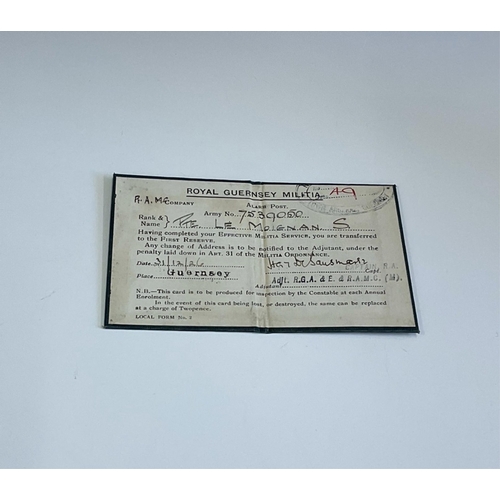 ROYAL GUERNSEY MILITIA. 49
R.A.M.C COMPANY ALARM POST.
Army No. 7539050
Rank & Name } Pte LE MOIGNAN. S
Having completed your EFFECTIVE MILITIA SERVICE, you are transferred
to the FIRST RESERVE.
Any change of Address is to be notified to the Adjutant, under the
penalty laid down in ART. 31 of the MILITIA ORDONNANCE.
Date 31/12/26
Capt.
Place Guernsey Adjutant Adjt. R.G.A. & E. & R.A.M.C. (M).
N.B.—This card is to be produced for inspection by the Constable at each Annual
Enrolment.
In the event of this card being lost, or destroyed, the same can be replaced
at a charge of Twopence.
LOCAL FORM No. 2